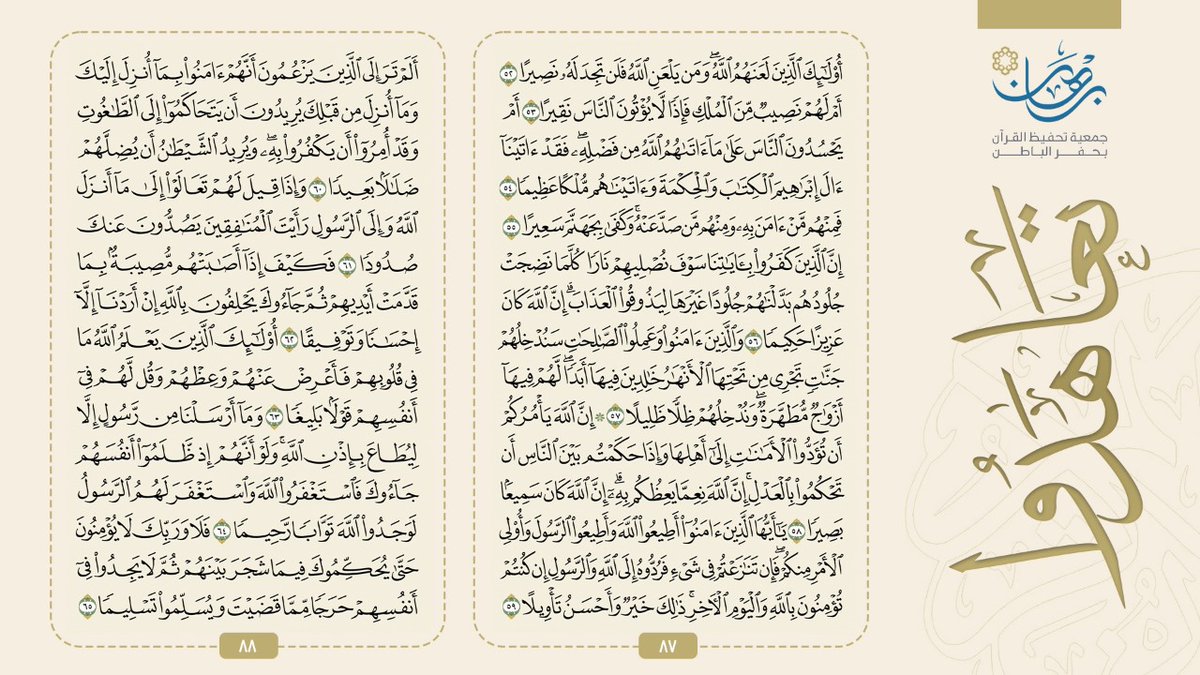 برهان
جمعية تحفيظ القرآن
بحفر الباطن
تعاهدوا
أُوْلَٰٓئِكَ ٱلَّذِينَ لَعَنَهُمُ ٱللَّهُۖ وَمَن يَلْعَنِ ٱللَّهُ فَلَن تَجِدَ لَهُۥ نَصِيرًا ٥٢
أَمْ لَهُمْ نَصِيبٌ مِّنَ ٱلْمُلْكِ فَإِذًا لَّا يُؤْتُونَ ٱلنَّاسَ نَقِيرًا ٥٣ أَمْ
يَحْسُدُونَ ٱلنَّاسَ عَلَىٰ مَآ ءَاتَىٰهُمُ ٱللَّهُ مِن فَضْلِهِۦۖ فَقَدْ ءَاتَيْنَآ
ءَالَ إِبْرَٰهِيمَ ٱلْكِتَٰبَ وَٱلْحِكْمَةَ وَءَاتَيْنَٰهُم مُّلْكًا عَظِيمًا ٥٤
فَمِنْهُم مَّنْ ءَامَنَ بِهِۦ وَمِنْهُم مَّن صَدَّ عَنْهُۚ وَكَفَىٰ بِجَهَنَّمَ سَعِيرًا ٥٥
إِنَّ ٱلَّذِينَ كَفَرُواْ بِـَٔايَٰتِنَا سَوْفَ نُصْلِيهِمْ نَارًا كُلَّمَا نَضِجَتْ
جُلُودُهُم بَدَّلْنَٰهُمْ جُلُودًا غَيْرَهَا لِيَذُوقُواْ ٱلْعَذَابَۗ إِنَّ ٱللَّهَ كَانَ
عَزِيزًا حَكِيمًا ٥٦ وَٱلَّذِينَ ءَامَنُواْ وَعَمِلُواْ ٱلصَّٰلِحَٰتِ سَنُدْخِلُهُمْ
جَنَّٰتٍ تَجْرِى مِن تَحْتِهَا ٱلْأَنْهَٰرُ خَٰلِدِينَ فِيهَآ أَبَدًاۖ لَّهُمْ فِيهَآ
أَزْوَٰجٌ مُّطَهَّرَةٌۖ وَنُدْخِلُهُمْ ظِلًّا ظَلِيلًا ٥٧ ۞ إِنَّ ٱللَّهَ يَأْمُرُكُمْ
أَن تُؤَدُّواْ ٱلْأَمَٰنَٰتِ إِلَىٰٓ أَهْلِهَا وَإِذَا حَكَمْتُم بَيْنَ ٱلنَّاسِ أَن
تَحْكُمُواْ بِٱلْعَدْلِۚ إِنَّ ٱللَّهَ نِعِمَّا يَعِظُكُم بِهِۦٓۗ إِنَّ ٱللَّهَ كَانَ سَمِيعًۢا
بَصِيرًا ٥٨ يَٰٓأَيُّهَا ٱلَّذِينَ ءَامَنُوٓاْ أَطِيعُواْ ٱللَّهَ وَأَطِيعُواْ ٱلرَّسُولَ وَأُوْلِى
ٱلْأَمْرِ مِنكُمْۖ فَإِن تَنَٰزَعْتُمْ فِى شَىْءٍ فَرُدُّوهُ إِلَى ٱللَّهِ وَٱلرَّسُولِ إِن كُنتُمْ
تُؤْمِنُونَ بِٱللَّهِ وَٱلْيَوْمِ ٱلْأَخِرِۚ ذَٰلِكَ خَيْرٌ وَأَحْسَنُ تَأْوِيلًا ٥٩
٨٧
أَلَمْ تَرَ إِلَى ٱلَّذِينَ يَزْعُمُونَ أَنَّهُمْ ءَامَنُواْ بِمَآ أُنزِلَ إِلَيْكَ
وَمَآ أُنزِلَ مِن قَبْلِكَ يُرِيدُونَ أَن يَتَحَاكَمُوٓاْ إِلَى ٱلطَّٰغُوتِ
وَقَدْ أُمِرُوٓاْ أَن يَكْفُرُواْ بِهِۦۖ وَيُرِيدُ ٱلشَّيْطَٰنُ أَن يُضِلَّهُمْ
ضَلَٰلًۢا بَعِيدًا ٦٠ وَإِذَا قِيلَ لَهُمْ تَعَالَوْاْ إِلَىٰ مَآ أَنزَلَ
ٱللَّهُ وَإِلَى ٱلرَّسُولِ رَأَيْتَ ٱلْمُنَٰفِقِينَ يَصُدُّونَ عَنكَ
صُدُودًا ٦١ فَكَيْفَ إِذَآ أَصَٰبَتْهُم مُّصِيبَةٌۢ بِمَا
قَدَّمَتْ أَيْدِيهِمْ ثُمَّ جَآءُوكَ يَحْلِفُونَ بِٱللَّهِ إِنْ أَرَدْنَآ إِلَّآ
إِحْسَٰنًا وَتَوْفِيقًا ٦٢ أُوْلَٰٓئِكَ ٱلَّذِينَ يَعْلَمُ ٱللَّهُ مَا
فِى قُلُوبِهِمْ فَأَعْرِضْ عَنْهُمْ وَعِظْهُمْ وَقُل لَّهُمْ فِىٓ
أَنفُسِهِمْ قَوْلًۢا بَلِيغًا ٦٣ وَمَآ أَرْسَلْنَا مِن رَّسُولٍ إِلَّا
لِيُطَاعَ بِإِذْنِ ٱللَّهِۚ وَلَوْ أَنَّهُمْ إِذ ظَّلَمُوٓاْ أَنفُسَهُمْ
جَآءُوكَ فَٱسْتَغْفَرُواْ ٱللَّهَ وَٱسْتَغْفَرَ لَهُمُ ٱلرَّسُولُ
لَوَجَدُواْ ٱللَّهَ تَوَّابًا رَّحِيمًا ٦٤ فَلَا وَرَبِّكَ لَا يُؤْمِنُونَ
حَتَّىٰ يُحَكِّمُوكَ فِيمَا شَجَرَ بَيْنَهُمْ ثُمَّ لَا يَجِدُواْ فِىٓ
أَنفُسِهِمْ حَرَجًا مِّمَّا قَضَيْتَ وَيُسَلِّمُواْ تَسْلِيمًا ٦٥
٨٨